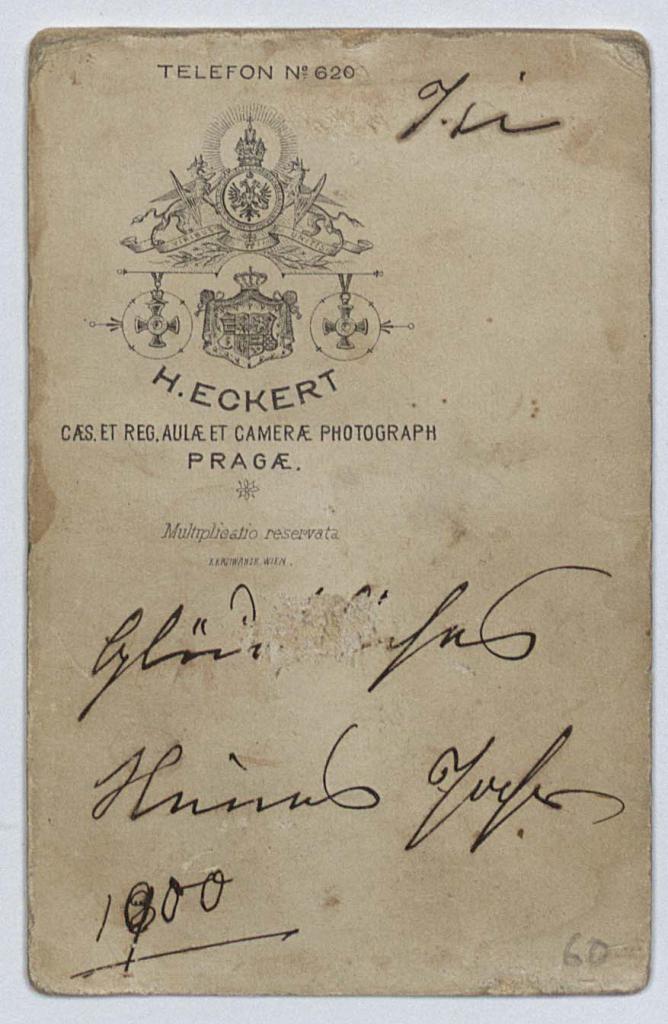 TELEFON Nº 620
VIRIBUS UNITIS
H. ECKERT
CÆS. ET REG. AULÆ ET CAMERÆ PHOTOGRAPH
PRAGÆ.
Multiplicatio reservata
WIEN.
Neues Jahr
1900
60